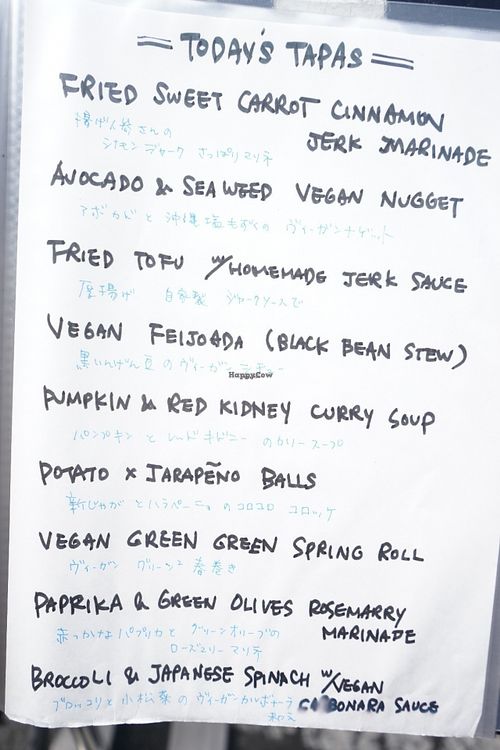 TODAY'S TAPAS
FRIED SWEET CARROT CINNAMON
JERK MARINADE
揚げ人参さんの
シナモン ジャーク さっぱりマリネ
AVOCADO & SEAWEED VEGAN NUGGET
アボカドと沖縄塩もずくの ヴィーガンナゲット
FRIED TOFU w/HOMEMADE JERK SAUCE
厚揚げ 自家製 ジャークソースで
VEGAN FEIJOADA (BLACK BEAN STEW)
黒いんげん豆のヴィーガンシチュー
HappyCow
PUMPKIN & RED KIDNEY CURRY SOUP
パンプキンとレッドキドニーのカリースープ
POTATO x JARAPEÑO BALLS
新じゃがとハラペーニョのコロコロ コロッケ
VEGAN GREEN GREEN SPRING ROLL
ヴィーガン グリーン2 春巻き
PAPRIKA & GREEN OLIVES ROSEMARRY
MARINADE
赤っかなパプリカとグリーンオリーブの
ローズマリーマリネ
BROCCOLI & JAPANESE SPINACH w/VEGAN
CARBONARA SAUCE
ブロッコリと小松菜のヴィーガンカルボナーラ
和え